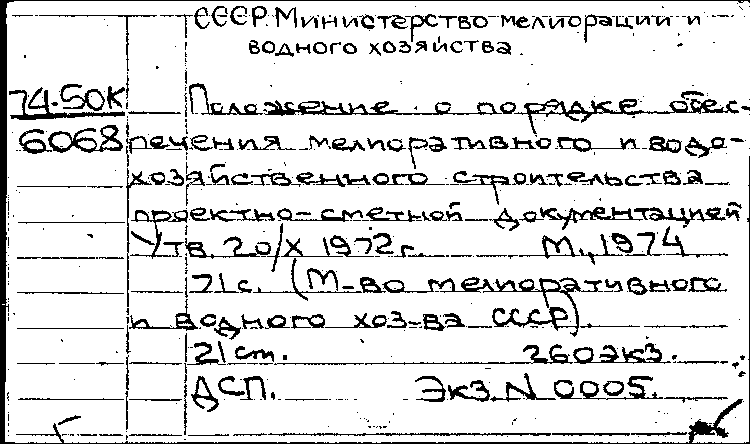 СССР. Министерство мелиорации и
водного хозяйства.
74-50К
6068
Положение о порядке обес-
печения мелиоративного и водо-
хозяйственного строительства
проектно-сметной документацией.
Утв. 20/X 1972 г. М., 1974
71 с. (М-во мелиоративного
и водного хоз-ва СССР).
21 см. 260 экз.
ДСП. Экз. N 0005.